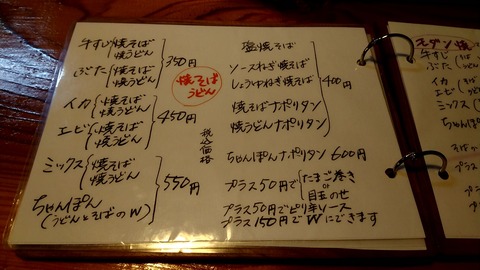 牛すじ 焼そば
焼うどん
ぶた 焼そば
焼うどん
350円
イカ 焼そば
焼うどん
エビ 焼そば
焼うどん
450円
ミックス 焼そば
焼うどん
ちゃんぽん
(うどんとそばのW)
550円
焼そば
うどん
税込価格
塩焼そば
ソースねぎ焼そば
しょうゆねぎ焼そば
焼そばナポリタン
焼うどんナポリタン
400円
ちゃんぽんナポリタン 600円
プラス50円で たまご巻き
or
目玉のせ
プラス50円でピリ辛ソース
プラス150円でWにできます
モダン焼
牛すじ
ぶた
イカ
エビ
ミックス
ちゃんぽん
プラス
プラス